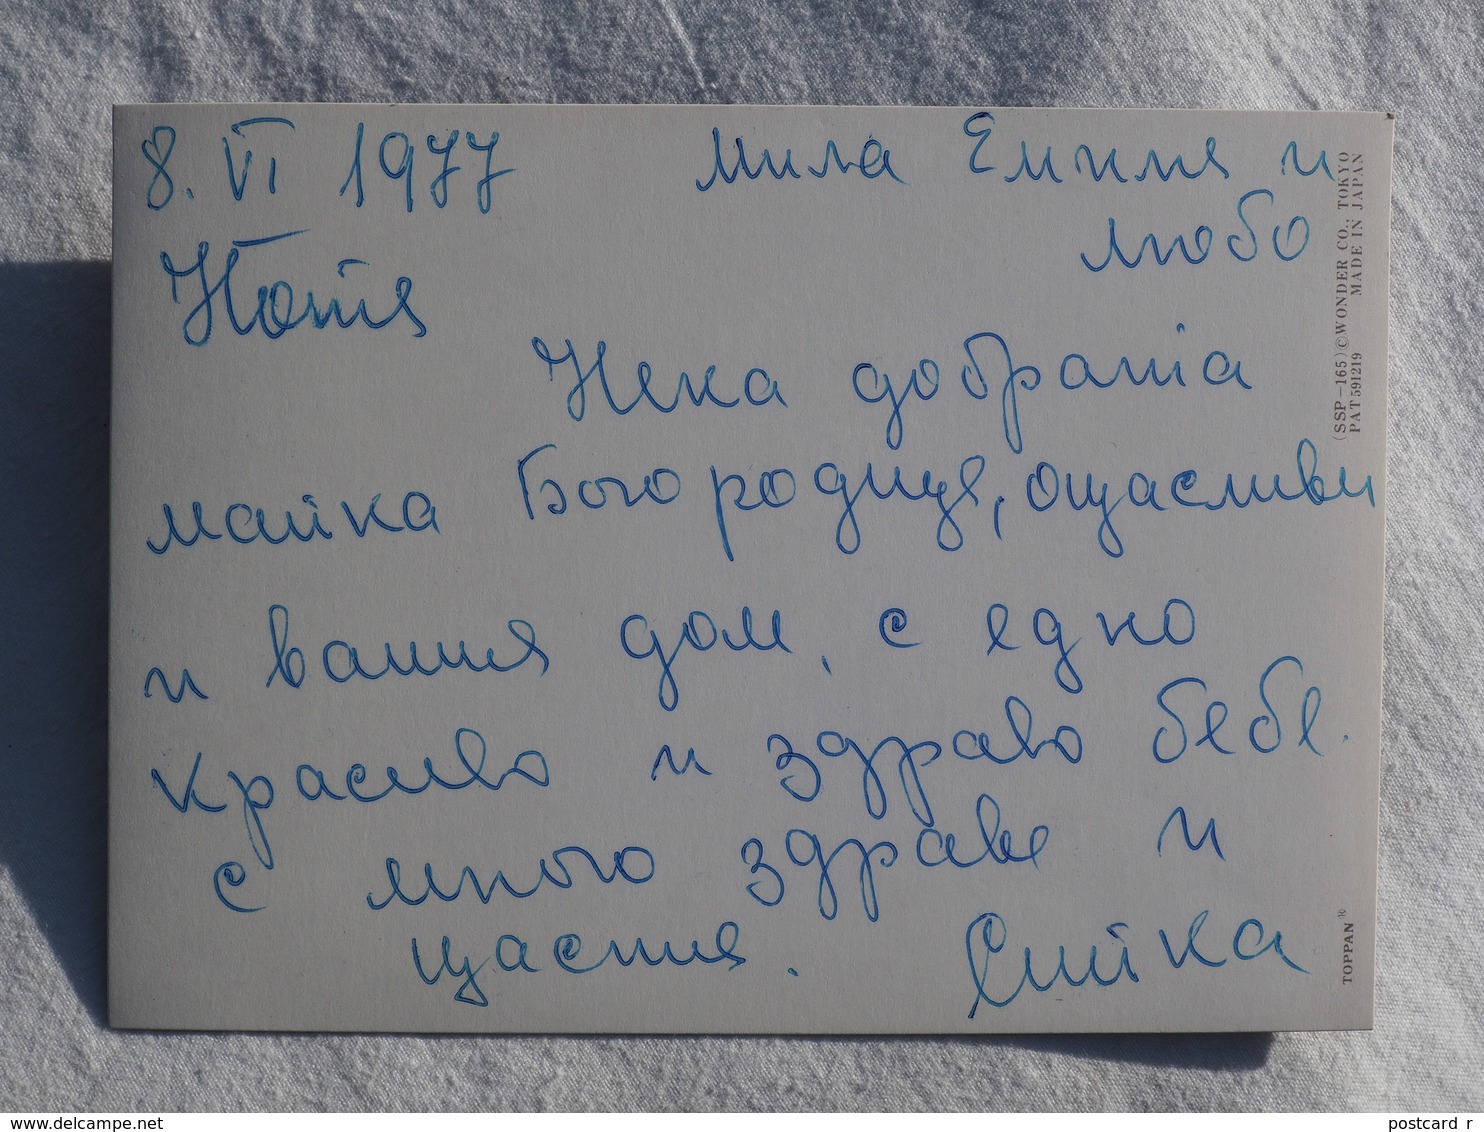 8. VI 1977 Мила Емилия и
Любо
Нека добрата
майка Богородица, ощасливи
и вашия дом, с едно
красиво и здраво бебе.
с много здраве и
щастия. Ситка
(SSP-165) © WONDER CO., TOKYO
PAT 591219 MADE IN JAPAN
TOPPAN ®
postcard r
www.delcampe.net